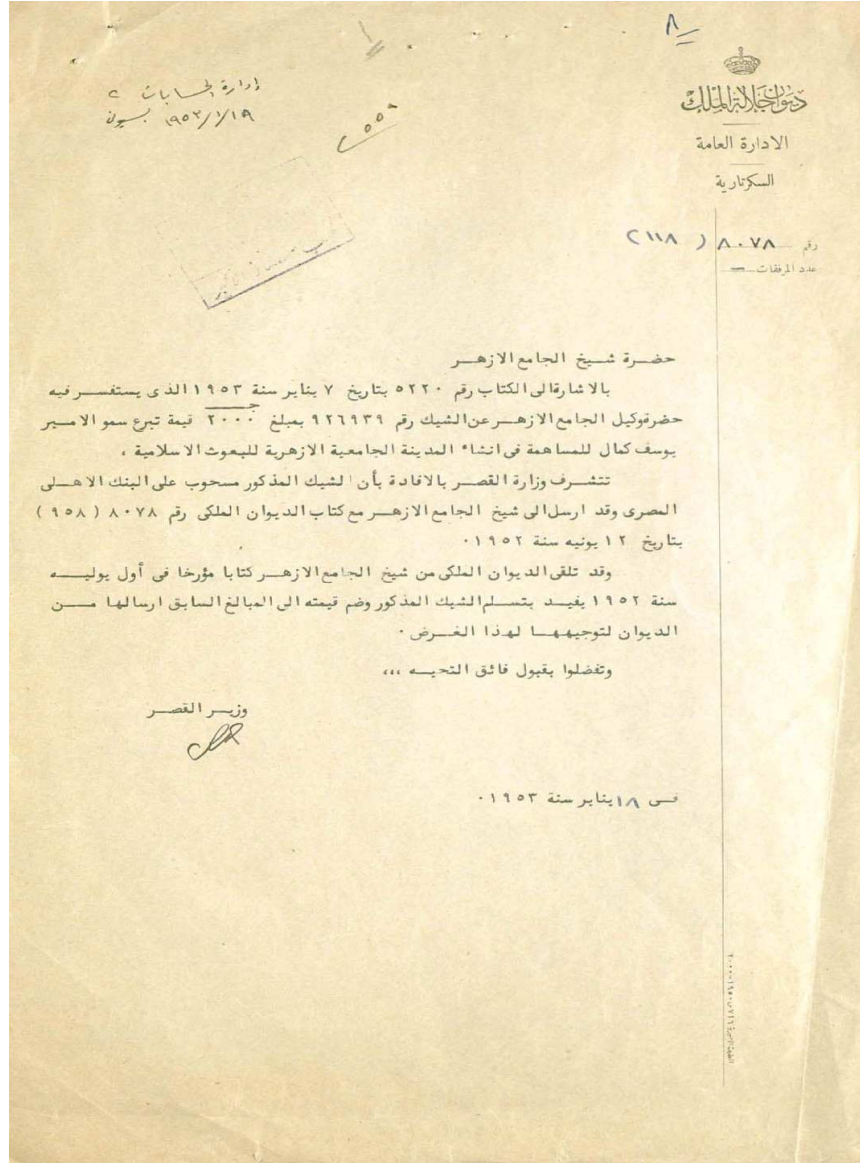 ٨
ديوان جلالة الملك
الادارة العامة
السكرتارية
رقم ٨٠٧٨ ( ٢١١٨
عدد المرفقات —
إدارة الحسابات
١٩٥٣/١/١٩
٥٥٩
حضـرة شـيخ الجامع الازهـر
بالاشارة الى الكتاب رقم ٥٢٢٠ بتاريخ ٧ يناير سنة ١٩٥٣ الذى يستفسـر فيه
حضرة وكيل الجامع الازهـر عن الشيك رقم ٩٢٦٩٣٩ بمبلغ ٢٠٠٠ جـ قيمة تبرع سمو الامـير
يوسف كمال للمساهمة فى انشاء المدينة الجامعية الازهرية للبعوث الاسلامية .
تتشـرف وزارة القصـر بالافادة بأن الشيك المذكور مسحوب على البنك الاهـلى
المصرى وقد ارسل الى شيخ الجامع الازهـر مع كتاب الديوان الملكى رقم ٨٠٧٨ ( ٩٥٨ )
بتاريخ ١٢ يونيه سنة ١٩٥٢ .
وقد تلقى الديوان الملكى من شيخ الجامع الازهـر كتابا مؤرخا فى أول يوليـــه
سنة ١٩٥٢ يفيـد بتسـلم الشيك المذكور وضم قيمته الى المبالغ السابق ارسالهـا مـــن
الديوان لتوجيههـا لهذا الغـرض .
وتفضلوا بقبول فائق التحيـــه ،،،
وزيـر القصـر
فــى ١٨ يناير سنة ١٩٥٣ .